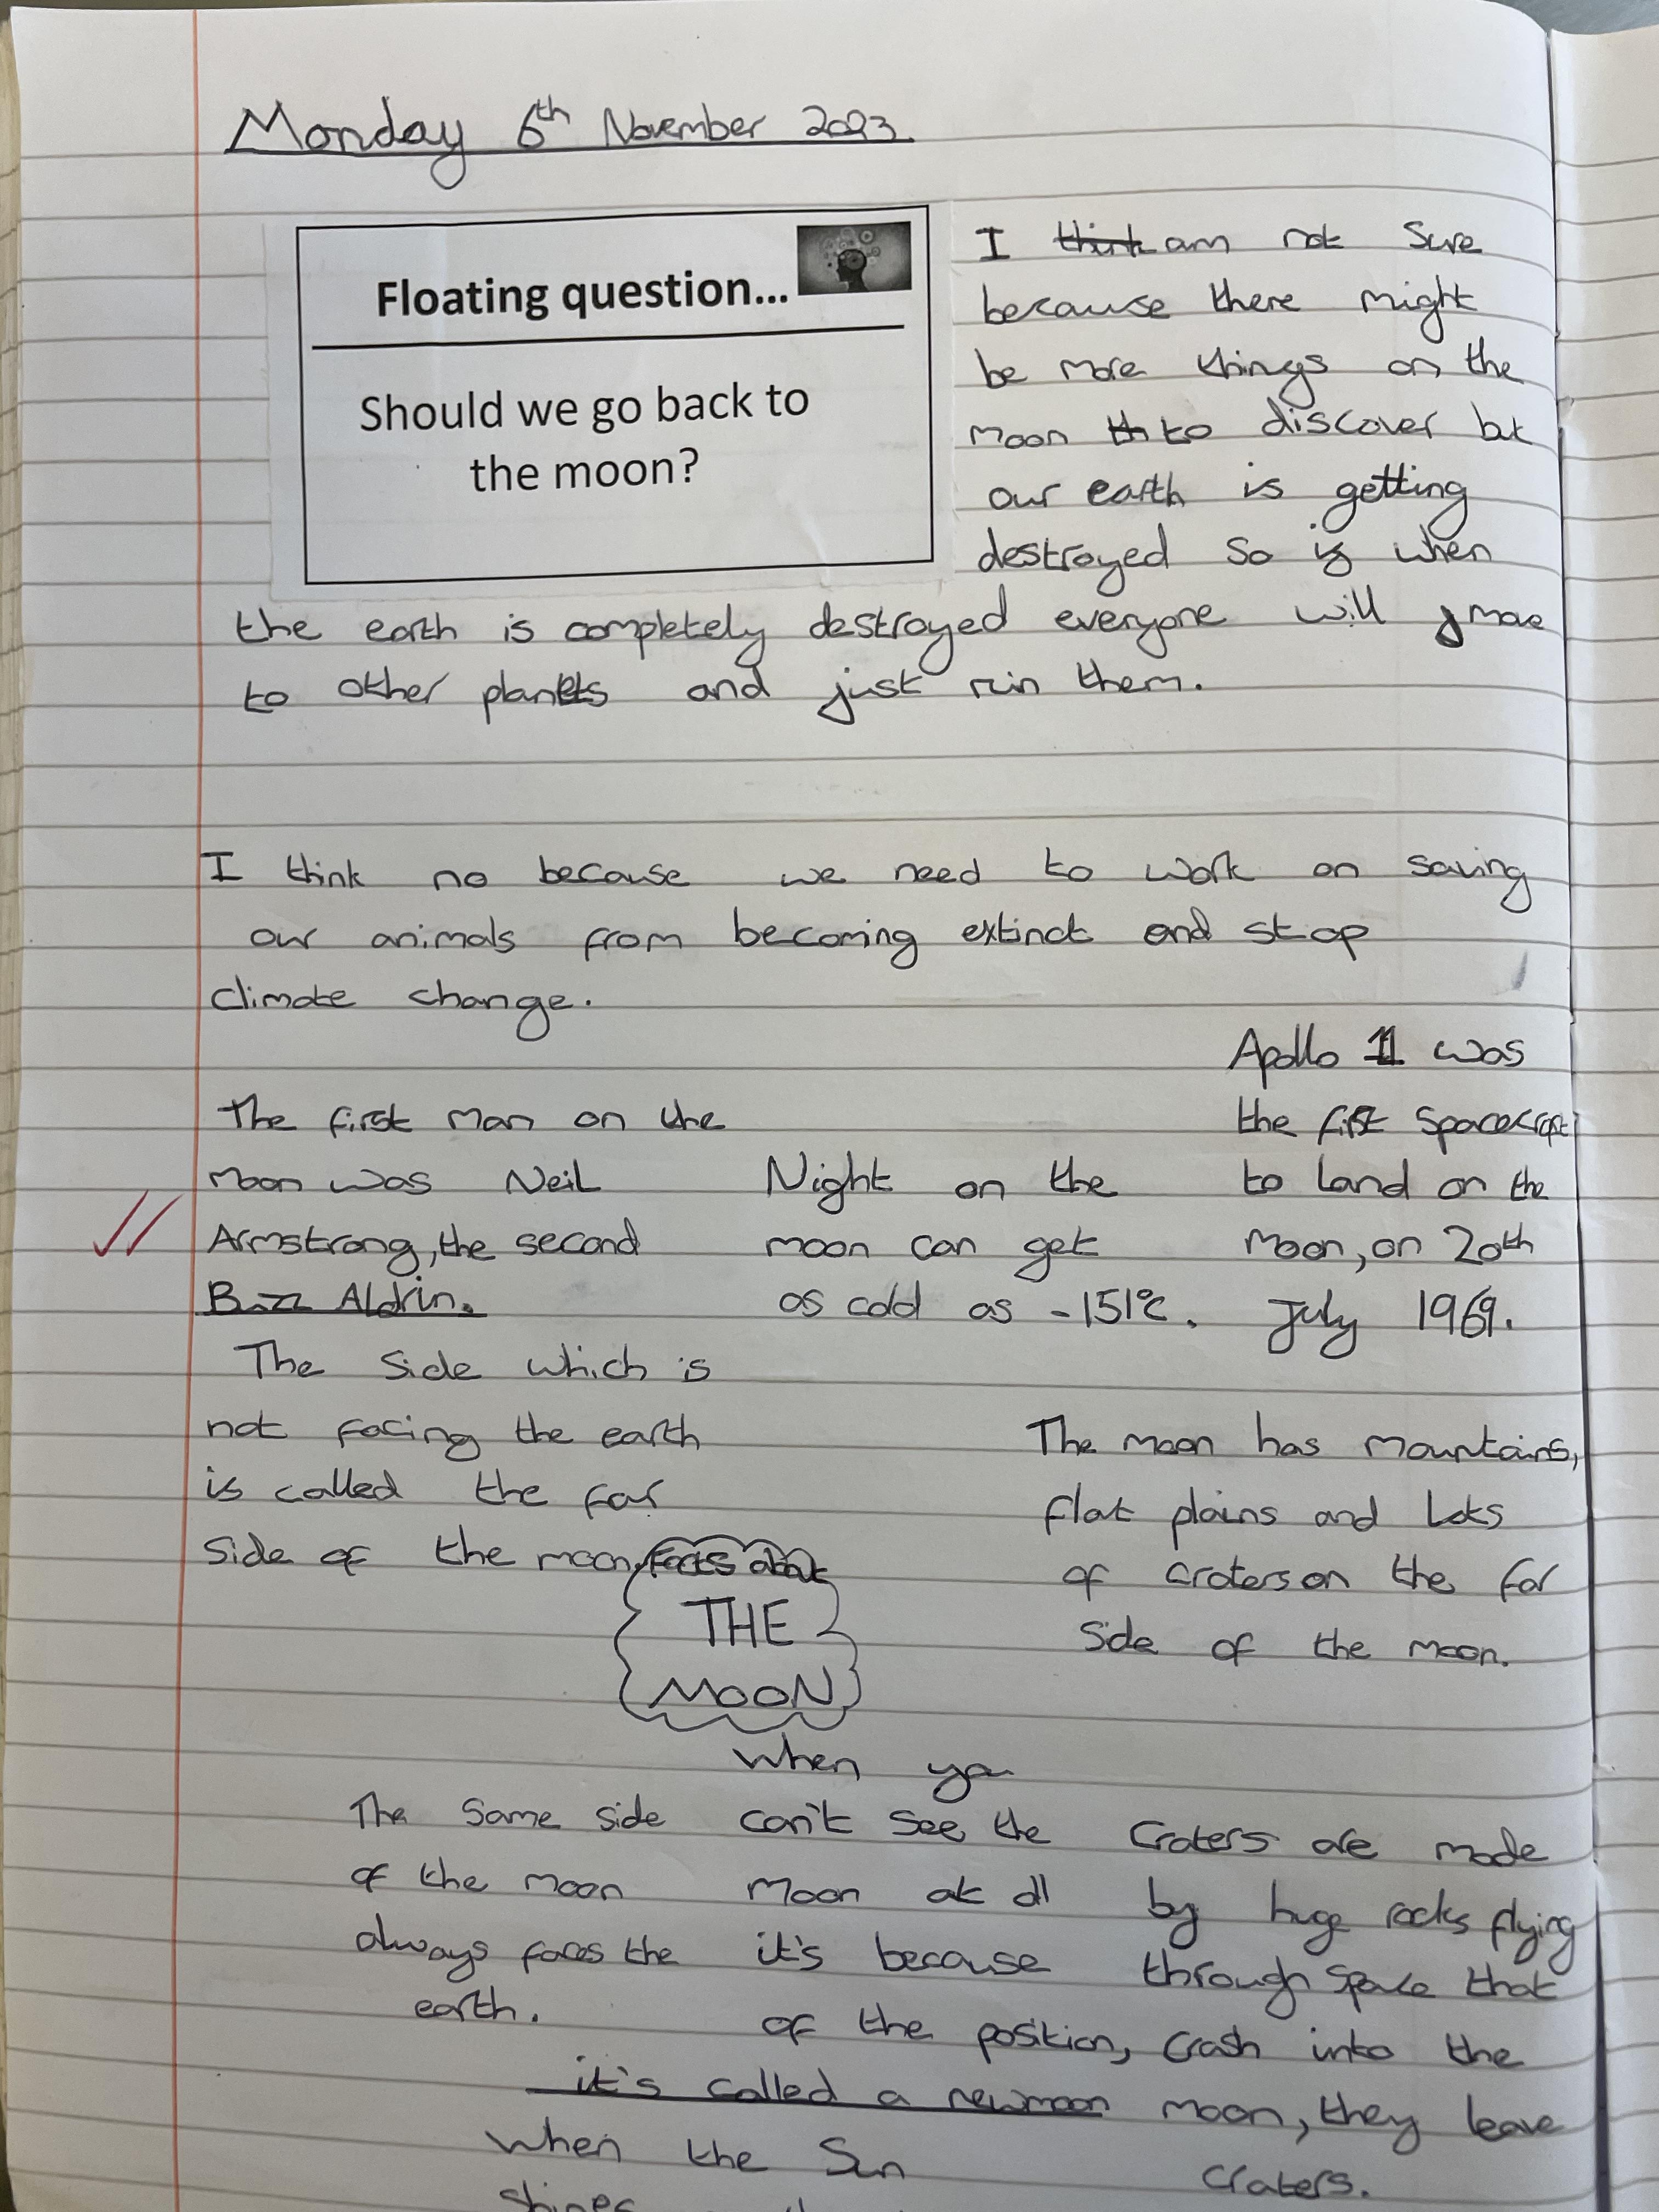 Monday 6th November 2023.
Floating question...
Should we go back to
the moon?
I think am not sure
because there might
be more things on the
moon th to discover but
our earth is getting
destroyed so is when
the earth is completely destroyed everyone will move
to other planets and just ruin them.
I think no because we need to work on saving
our animals from becoming extinct and stop
climate change.
The first man on the
moon was Neil
Armstrong, the second
Buzz Aldrin.
Night on the
moon can get
as cold as -151°c.
Apollo 11 was
the first spacecraft
to land on the
Moon, on 20th
July 1969.
The side which is
not facing the earth
is called the far
side of the moon.
The moon has mountains,
flat plains and lots
of craters on the far
side of the moon.
facts about
THE
MOON
The same side
of the moon
always faces the
earth.
When you
can't see the
moon at all
it's because
of the position,
it's called a newmoon
Craters are made
by huge rocks flying
through space that
crash into the
moon, they leave
craters.
When the Sun
shines